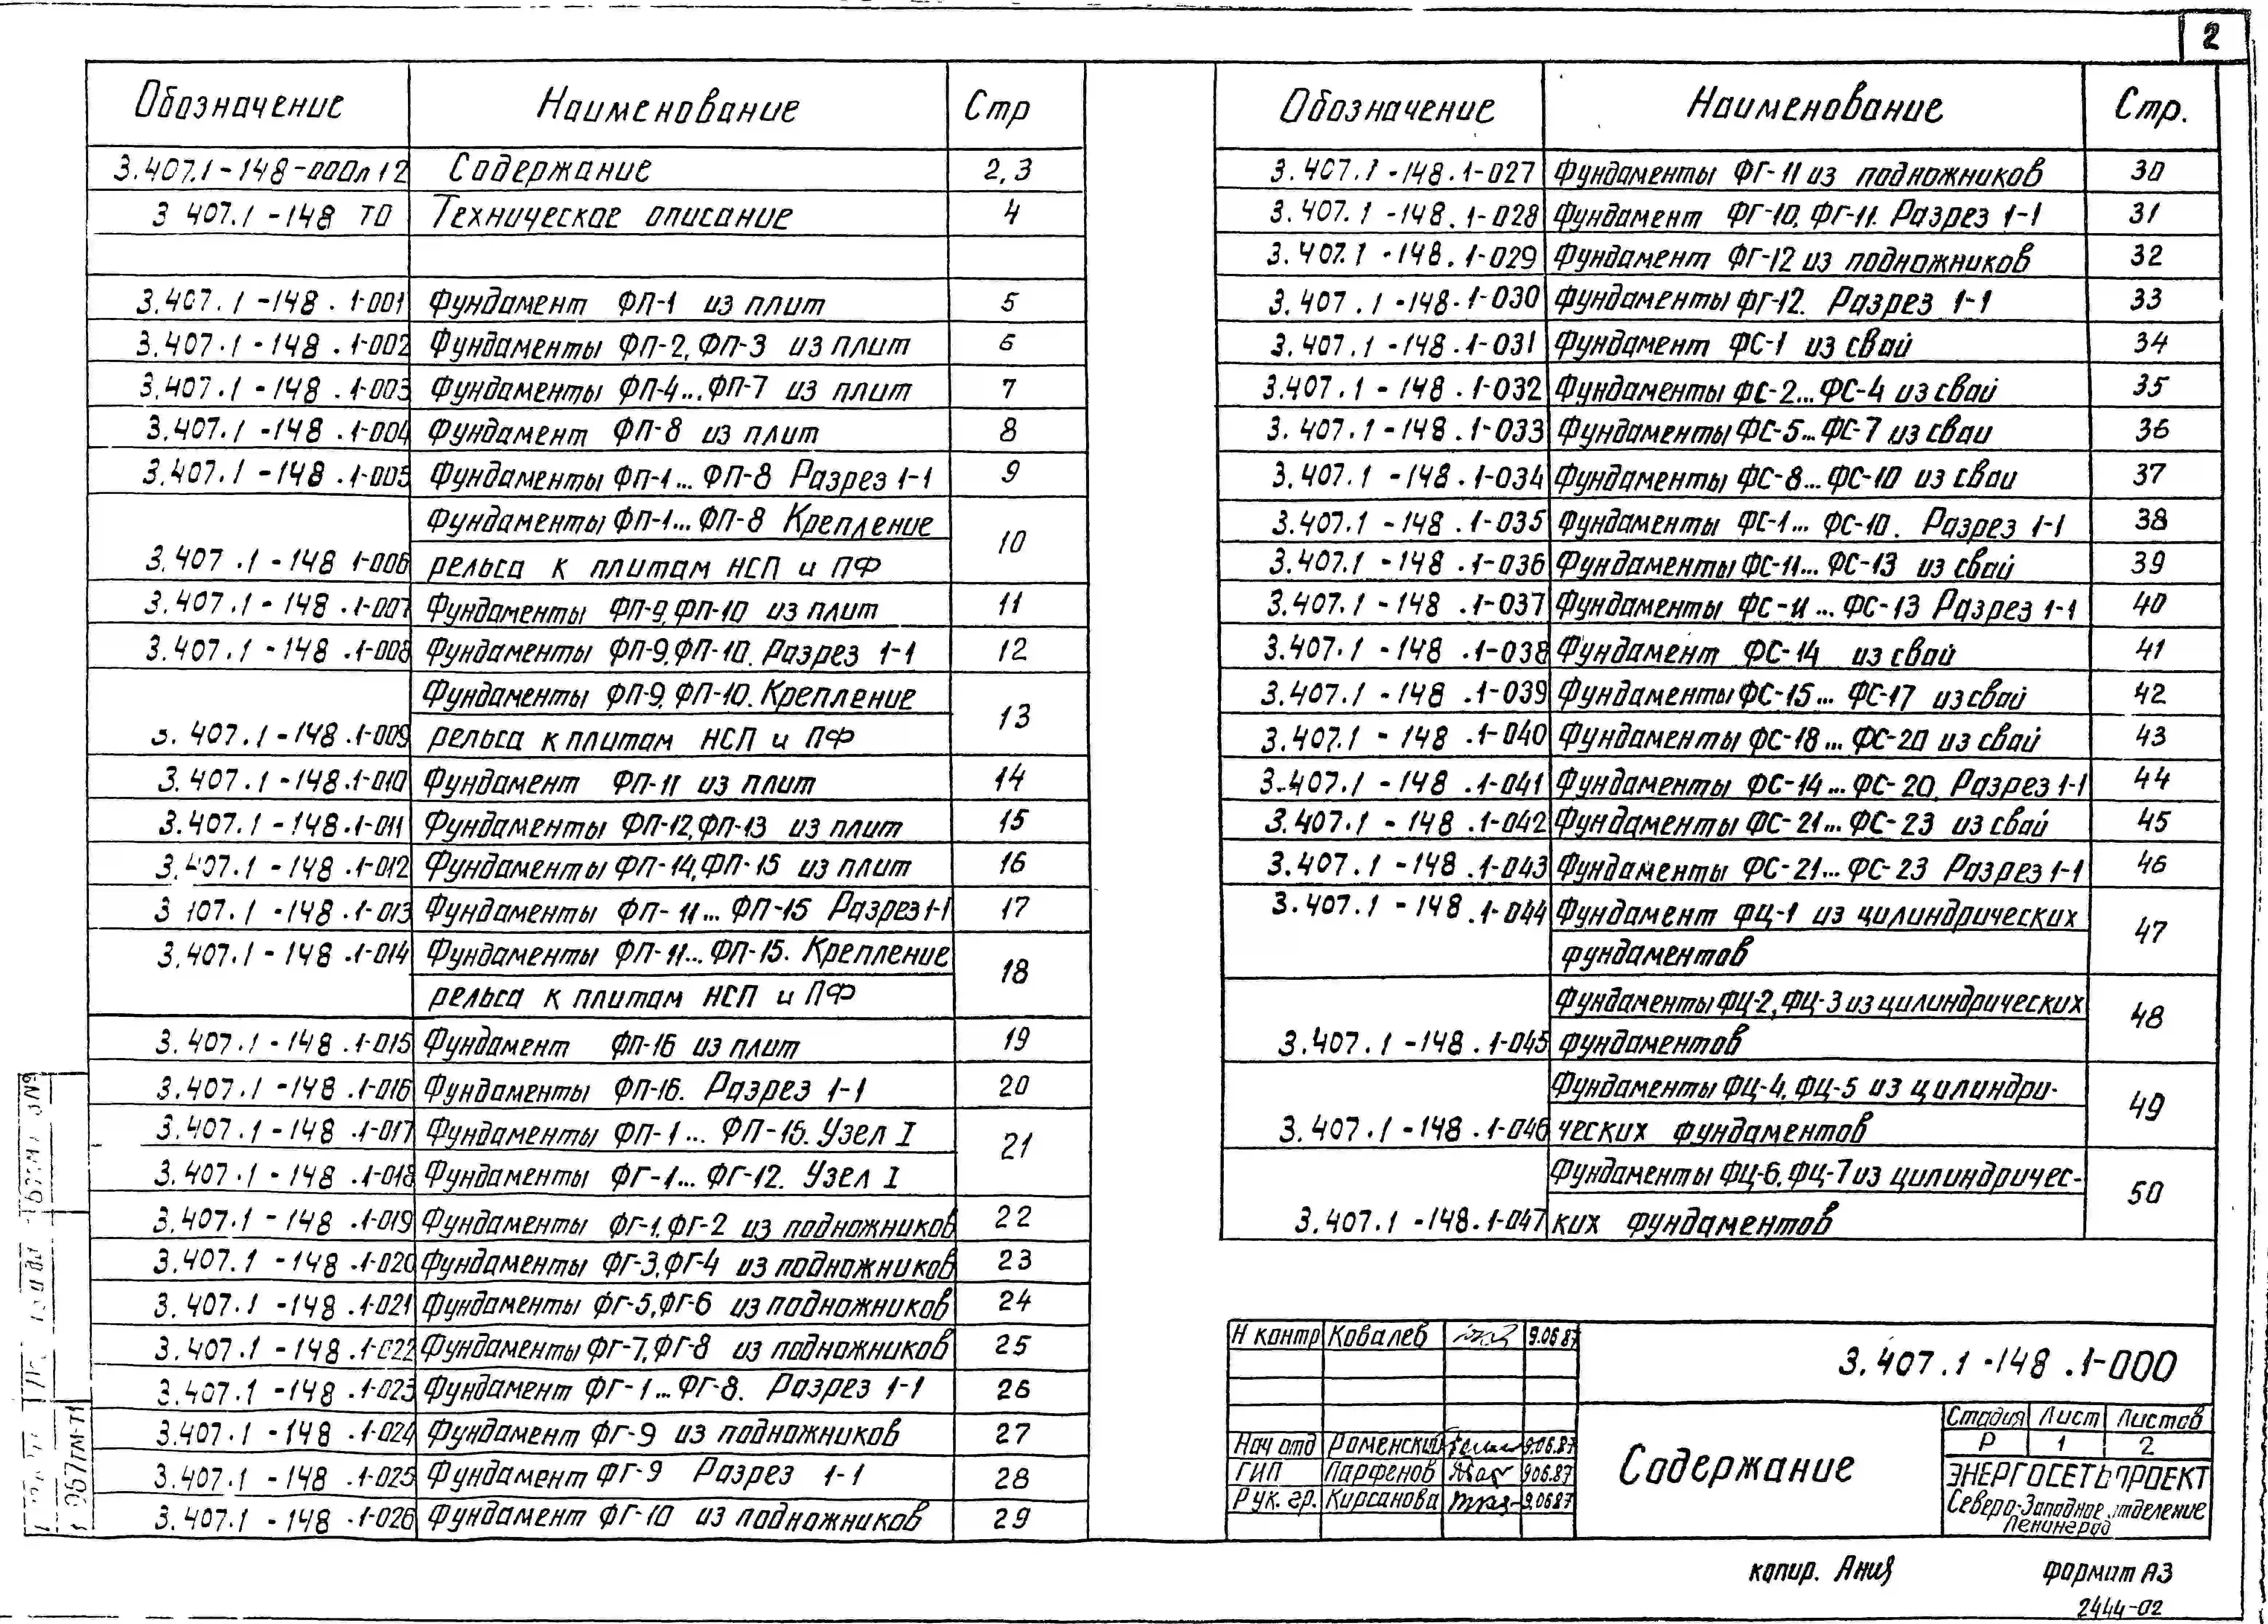 2
Обозначение Наименование Стр
3.407.1-148-000л 12 Содержание 2,3
3 407.1-148 ТО Техническое описание 4
3.407.1-148.1-001 Фундамент ФП-1 из плит 5
3.407.1-148.1-002 Фундаменты ФП-2, ФП-3 из плит 6
3.407.1-148.1-003 Фундаменты ФП-4...ФП-7 из плит 7
3.407.1-148.1-004 Фундамент ФП-8 из плит 8
3.407.1-148.1-005 Фундаменты ФП-1...ФП-8 Разрез 1-1 9
Фундаменты ФП-1...ФП-8 Крепление
3.407.1-148 1-006 рельса к плитам НСП и ПФ 10
3.407.1-148.1-007 Фундаменты ФП-9, ФП-10 из плит 11
3.407.1-148.1-008 Фундаменты ФП-9, ФП-10. Разрез 1-1 12
Фундаменты ФП-9, ФП-10. Крепление
3.407.1-148.1-009 рельса к плитам НСП и ПФ 13
3.407.1-148.1-010 Фундамент ФП-11 из плит 14
3.407.1-148.1-011 Фундаменты ФП-12, ФП-13 из плит 15
3.407.1-148.1-012 Фундаменты ФП-14, ФП-15 из плит 16
3 407.1-148.1-013 Фундаменты ФП-11...ФП-15 Разрез 1-1 17
3.407.1-148.1-014 Фундаменты ФП-11...ФП-15. Крепление
рельса к плитам НСП и ПФ 18
3.407.1-148.1-015 Фундамент ФП-16 из плит 19
3.407.1-148.1-016 Фундаменты ФП-16. Разрез 1-1 20
3.407.1-148.1-017 Фундаменты ФП-1...ФП-16. Узел I 21
3.407.1-148.1-018 Фундаменты ФГ-1...ФГ-12. Узел I
3.407.1-148.1-019 Фундаменты ФГ-1, ФГ-2 из подножников 22
3.407.1-148.1-020 Фундаменты ФГ-3, ФГ-4 из подножников 23
3.407.1-148.1-021 Фундаменты ФГ-5, ФГ-6 из подножников 24
3.407.1-148.1-022 Фундаменты ФГ-7, ФГ-8 из подножников 25
3.407.1-148.1-023 Фундамент ФГ-1...ФГ-8. Разрез 1-1 26
3.407.1-148.1-024 Фундамент ФГ-9 из подножников 27
3.407.1-148.1-025 Фундамент ФГ-9 Разрез 1-1 28
3.407.1-148.1-026 Фундамент ФГ-10 из подножников 29
Обозначение Наименование Стр.
3.407.1-148.1-027 Фундаменты ФГ-11 из подножников 30
3.407.1-148.1-028 Фундамент ФГ-10, ФГ-11. Разрез 1-1 31
3.407.1-148.1-029 Фундамент ФГ-12 из подножников 32
3.407.1-148.1-030 Фундаменты ФГ-12. Разрез 1-1 33
3.407.1-148.1-031 Фундамент ФС-1 из свай 34
3.407.1-148.1-032 Фундаменты ФС-2...ФС-4 из свай 35
3.407.1-148.1-033 Фундаменты ФС-5...ФС-7 из сваи 36
3.407.1-148.1-034 Фундаменты ФС-8...ФС-10 из сваи 37
3.407.1-148.1-035 Фундаменты ФС-1...ФС-10. Разрез 1-1 38
3.407.1-148.1-036 Фундаменты ФС-11...ФС-13 из свай 39
3.407.1-148.1-037 Фундаменты ФС-11...ФС-13 Разрез 1-1 40
3.407.1-148.1-038 Фундамент ФС-14 из свай 41
3.407.1-148.1-039 Фундаменты ФС-15...ФС-17 из свай 42
3.407.1-148.1-040 Фундаменты ФС-18...ФС-20 из свай 43
3.407.1-148.1-041 Фундаменты ФС-14...ФС-20. Разрез 1-1 44
3.407.1-148.1-042 Фундаменты ФС-21...ФС-23 из свай 45
3.407.1-148.1-043 Фундаменты ФС-21...ФС-23 Разрез 1-1 46
3.407.1-148.1-044 Фундамент ФЦ-1 из цилиндрических
фундаментов 47
Фундаменты ФЦ-2, ФЦ-3 из цилиндрических
3.407.1-148.1-045 фундаментов 48
Фундаменты ФЦ-4, ФЦ-5 из цилиндри-
3.407.1-148.1-046 ческих фундаментов 49
Фундаменты ФЦ-6, ФЦ-7 из цилиндричес-
3.407.1-148.1-047 ких фундаментов 50
Н контр Ковалев 9.06.87
3.407.1-148.1-000
Нач отд Роменский 9.06.87
ГИП Парфенов 9.06.87
Рук. гр. Кирсанова 9.06.87
Содержание
Стадия Лист Листов
Р 1 2
ЭНЕРГОСЕТЬПРОЕКТ
Северо-Западное отделение
Ленинград
копир. Формат А3
2444-02
967тм-т1